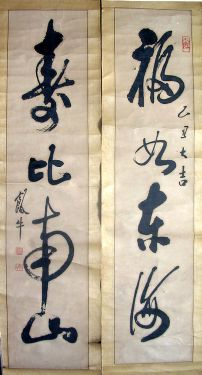 福如东海
乙丑大吉
寿比南山